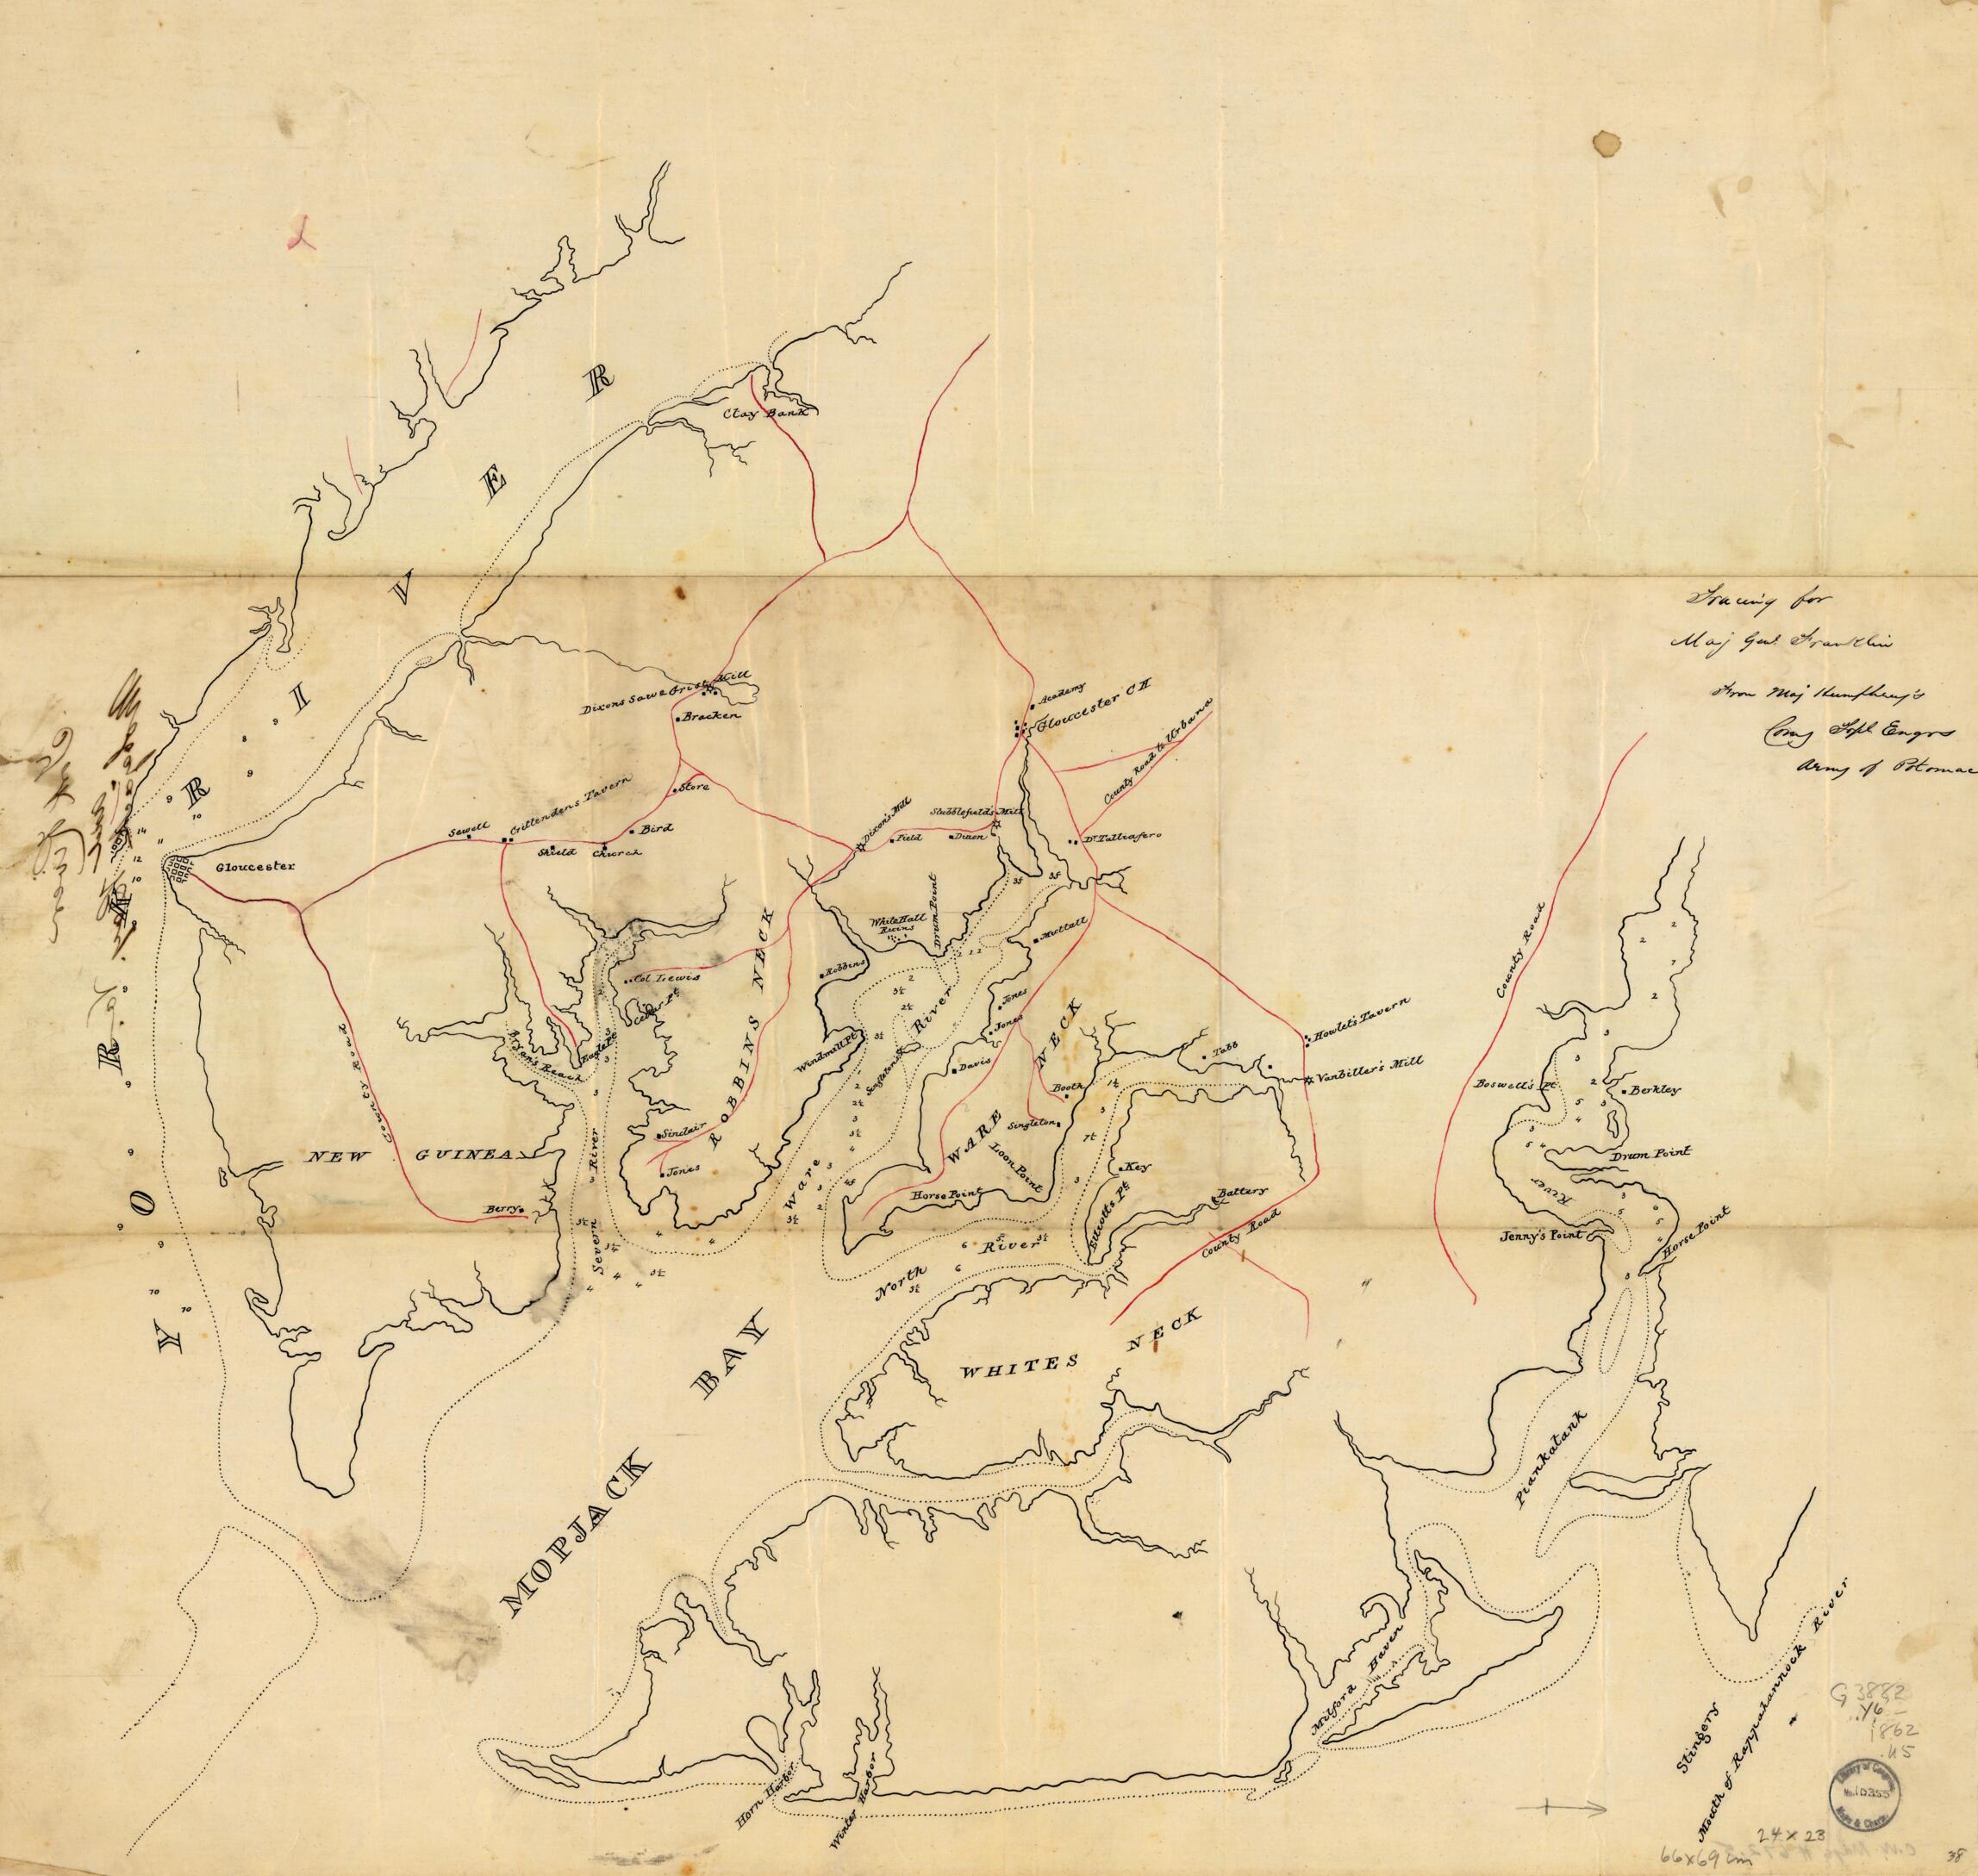 Tracing for
Maj Genl Franklin
From Maj Humphreys
Comg Topl Engrs
Army of Potomac
YORK RIVER
Clay Bank
Dixons Saw & Grist Mill
Bracken
Academy
Gloucester CH
County Road to Urbana
Store
Sewell
Crittendens Tavern
Bird
Shield
Church
Dixon's Mill
Field
Stubblefield's Mill
Dixon
Dr Talliafero
Gloucester
White Hall
Ruins
Drum Point
Robbins
Col Lewis
Cedar Pt
ROBBINS NECK
Windmill Pt
Singleton's
Jones
Jones
Davis
WARE NECK
Booth
Singleton
Loon Point
Horse Point
Tabb
Howlet's Tavern
Vanbiller's Mill
Key
Elliotts Pt
Battery
County Road
County Road
County Road
Boswell's Pt
Berkley
Drum Point
River
Jenny's Point
Horse Point
Eagle Pt
NEW GUINEA
Berry
Severn River
Sinclair
Jones
Ware River
North River
WHITES NECK
MOPJACK BAY
Piankatank
Milford Haven
Horn Harbor
Winter Harbor
Stingery
Mouth of Rappahannock River
G3882
.Y6
1862
.H5
Library of Congress
No. 10355
Maps & Charts
24 x 23
66x69 cm
38